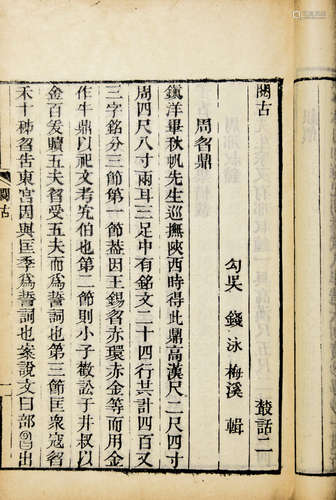 閱古
叢話二
勾吳 錢泳 梅溪 輯
周曶鼎
鎮洋畢秋帆先生巡撫陝西時得此鼎高漢尺二尺四寸
周四尺八寸兩耳三足中有銘文二十四行共計四百又
三字銘分三節第一節蓋因王錫曶赤環赤金等而用金
作牛鼎以祀文考宄伯也第二節則小子𢾭訟于井叔以
金百爰贖五夫曶受五夫而爲誓詞也第三節匡衆寇曶
禾十秭曶告東宮因與匡季爲誓詞也案說文曰部曶出
閱古
一